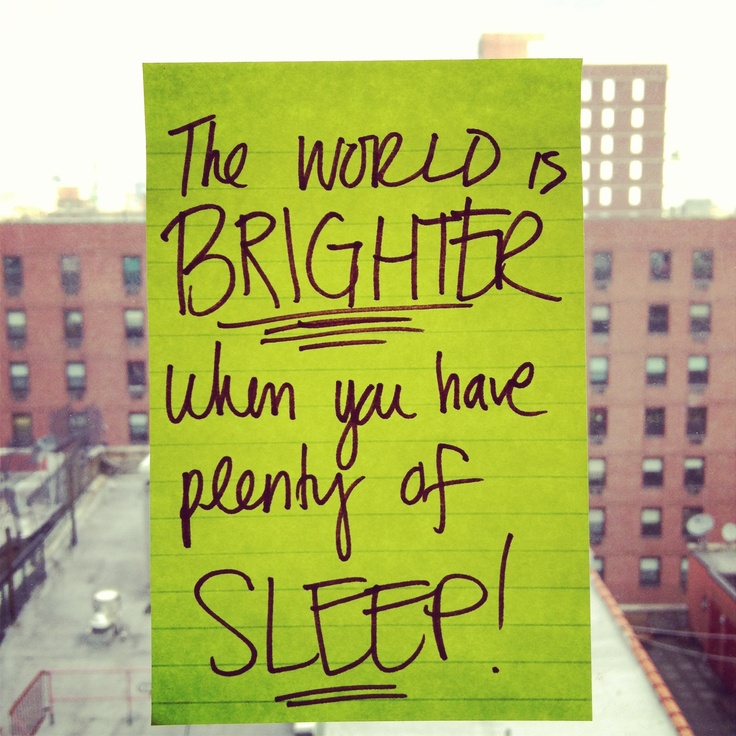 The WORLD is
BRIGHTER
when you have
plenty of
SLEEP!